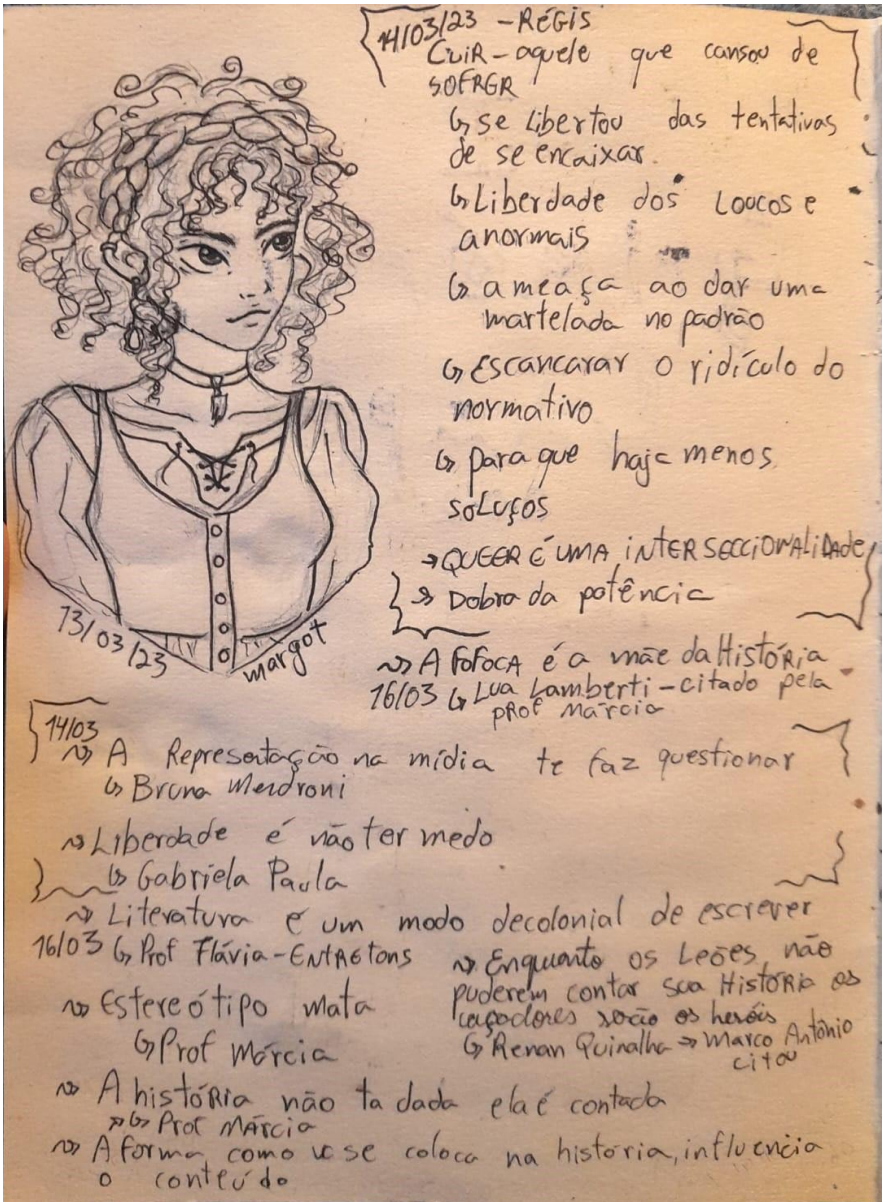 14/03/23 - RÉGIS
CUIR - aquele que cansou de
SOFRER
↳ se libertou das tentativas
de se encaixar.
↳ Liberdade dos Loucos e
anormais
↳ ameaça ao dar uma
martelada no padrão
↳ Escancarar o ridículo do
normativo
↳ para que haja menos
soluços
→ QUEER É UMA INTERSECCIONALIDADE
↳ Dobra da potência
13/03/23
margot
~> A FOFOCA é a mãe da HistóRia
16/03 ↳ Lua Lamberti - citado pela
pRof Márcia
14/03
~> A Representação na mídia te faz questionar
↳ Bruna Mendroni
~> Liberdade é não ter medo
↳ Gabriela Paula
~> Literatura é um modo decolonial de escrever
16/03 ↳ Prof Flávia - ENTREtons
~> Estereótipo mata
↳ Prof Márcia
~> Enquanto os Leões não
puderem contar sua HistóRia os
caçadores serão os heróis
↳ Renan Quinalha → Marco Antônio
citou
~> A históRia não ta dada ela é contada
↳ Prof MÁRcia
~> A forma como vc se coloca na história, influencia
o conteúdo